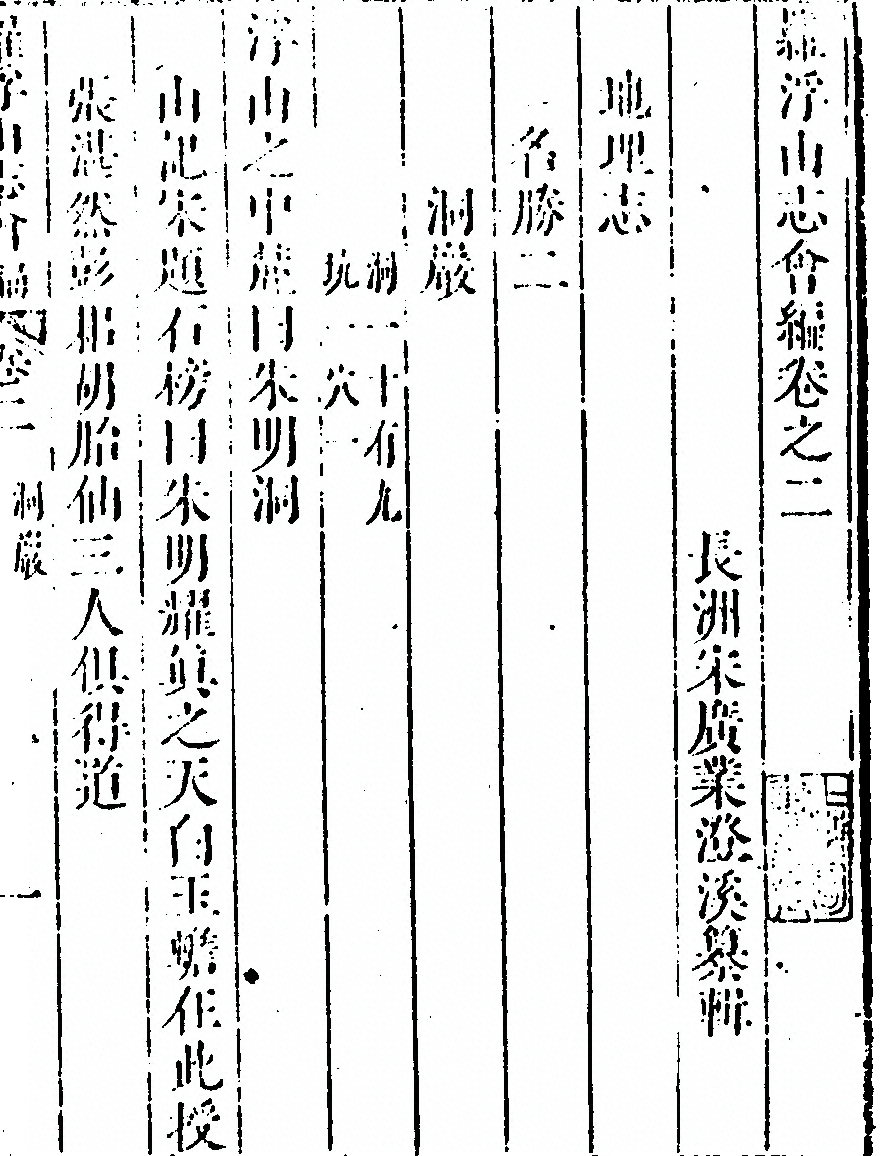 羅浮山志會編卷之二
長洲宋廣業澄溪纂輯
地理志
名勝二
洞巖
洞一十有九
坑一穴一
浮山之中麓曰朱明洞
山記朱題石榜曰朱明耀眞之天白玉蟾住此授
張湛然彭耜胡胎仙三人俱得道
羅浮山志會編 卷二 洞巖 一